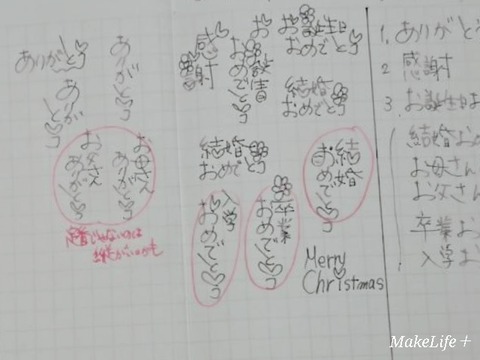 ありがとう
ありがとう
ありがとう
お母さん
ありがとう
お父さん
ありがとう
感謝
お誕生日
おめでとう
お誕生日
おめでとう
結婚
おめでとう
結婚
おめでとう
結婚
おめでとう
卒業
おめでとう
入学
おめでとう
Merry
Christmas
1. ありがとう
2 感謝
3. お誕生日お
結婚お
お母さん
お父さん
卒業お
入学お
MakeLife+